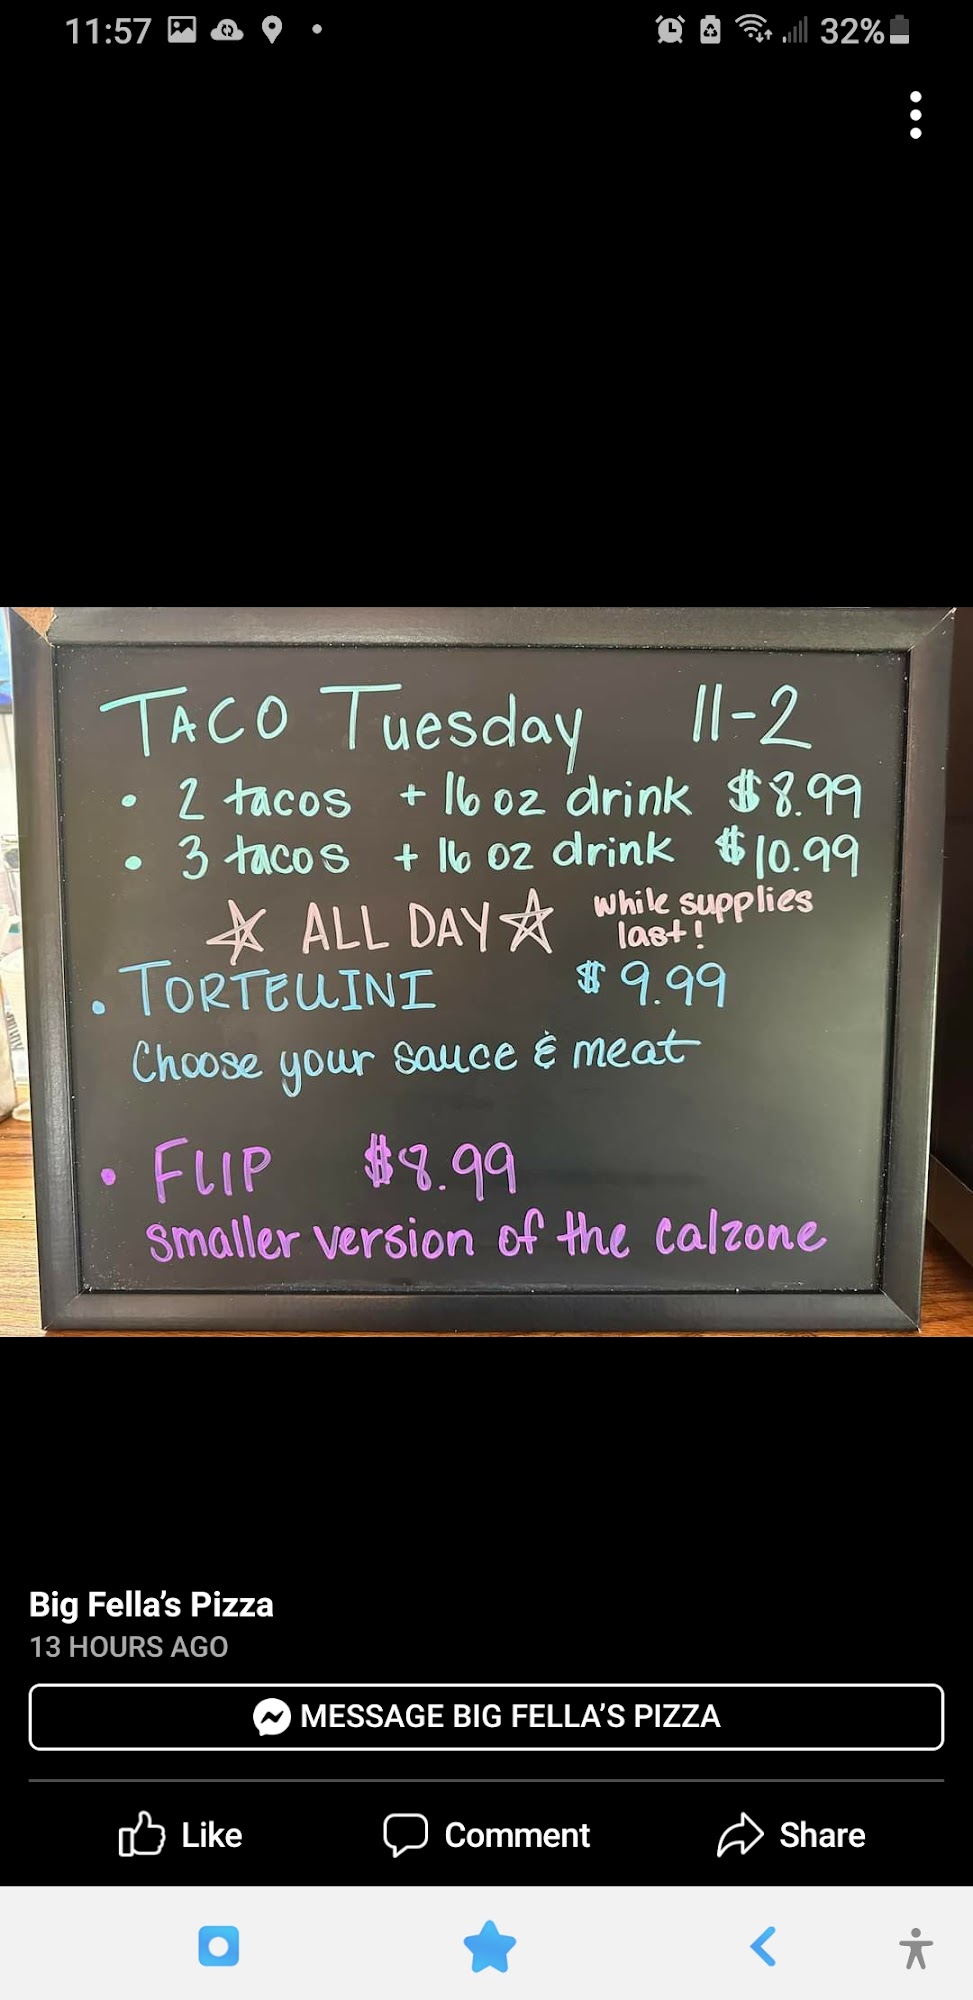 11:57 32%
TACO Tuesday 11-2
• 2 tacos + 16 oz drink $8.99
• 3 tacos + 16 oz drink $10.99
☆ ALL DAY ☆ while supplies
last!
• TORTELLINI $9.99
Choose your sauce & meat
• FLIP $8.99
smaller version of the calzone
Big Fella's Pizza
13 HOURS AGO
MESSAGE BIG FELLA'S PIZZA
Like Comment Share